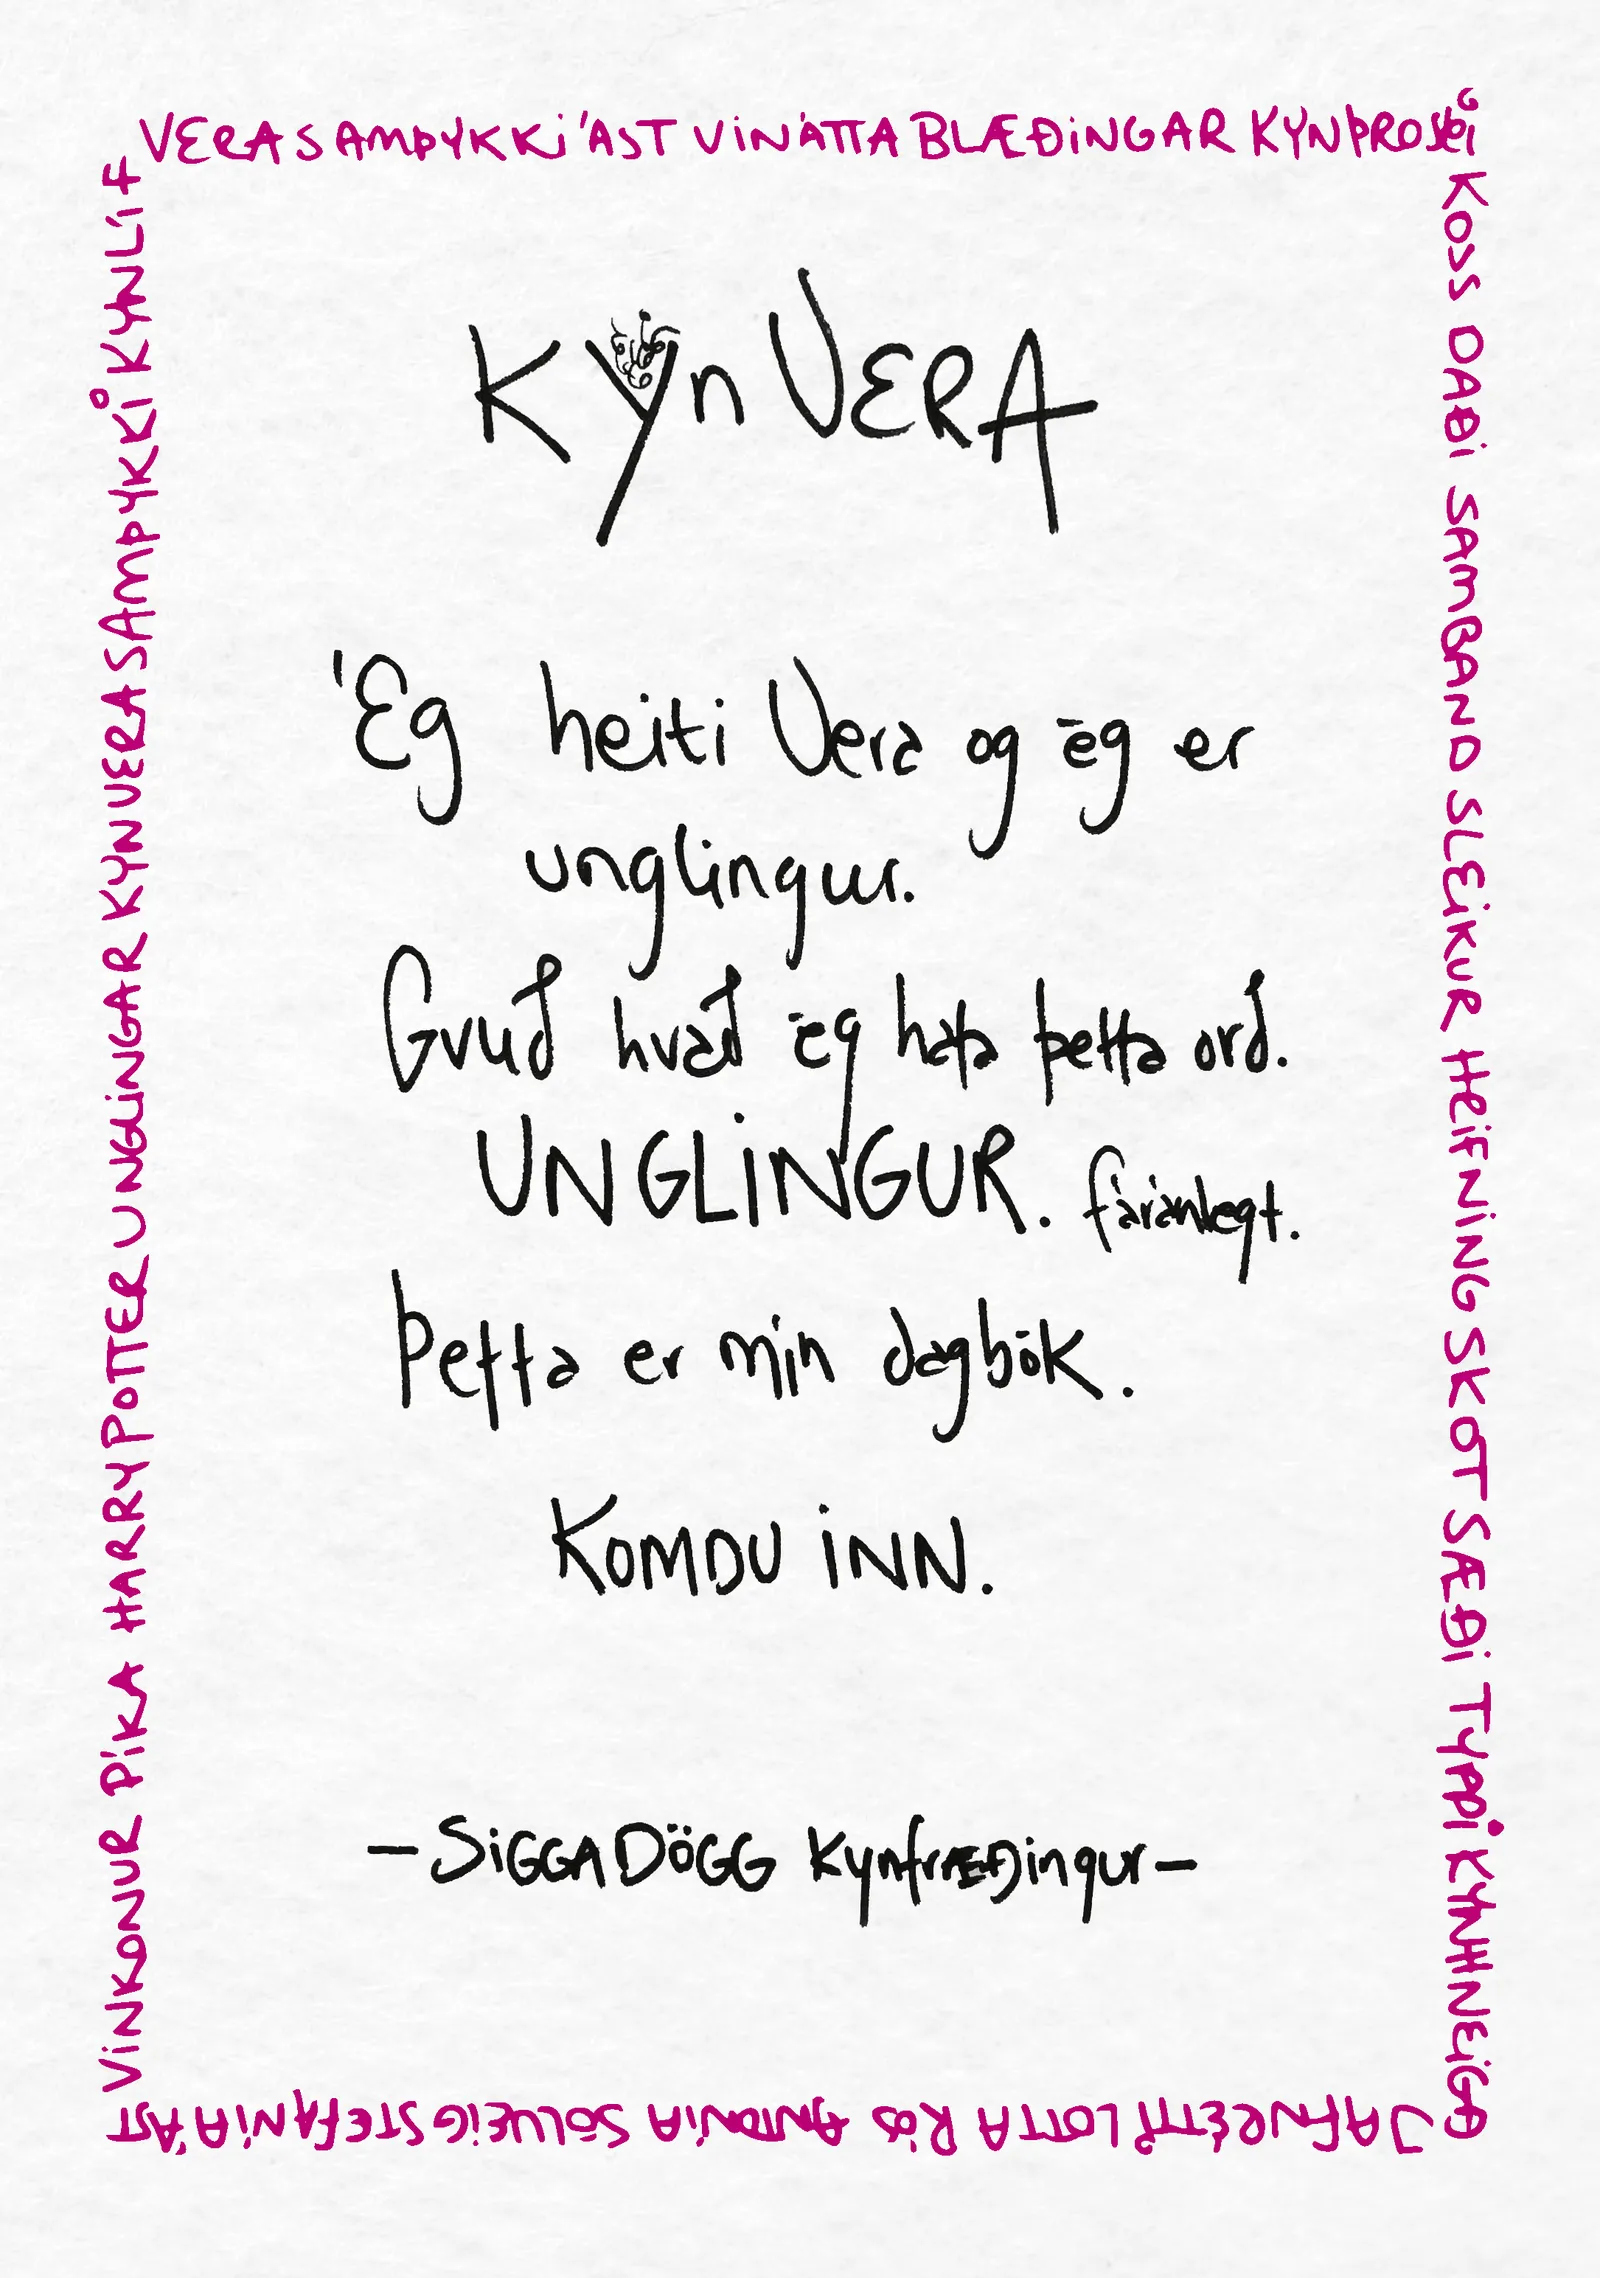 VERA SAMÞYKKI ÁST VINÁTTA BLÆÐINGAR KYNÞROSKI
KOSS DAÐI SAMBAND SLEIKUR HEFNING SKOT SÆÐI TYPPI KYNHNEIGÐ
KYNVERA
Ég heiti Vera og ég er
unglingur.
Gvuð hvað ég hata þetta orð.
UNGLINGUR. fáránlegt.
Þetta er mín dagbók.
KOMDU INN.
—SIGGA DÖGG kynfræðingur—
JAFNRÉTTI LOTTA RÓS ANTONÍA SÓLVEIG STEFANÍA ÁST
VINKONUR PÍKA HARRY POTTER UNGLINGAR KYNVERA SAMÞYKKI KYNLÍF